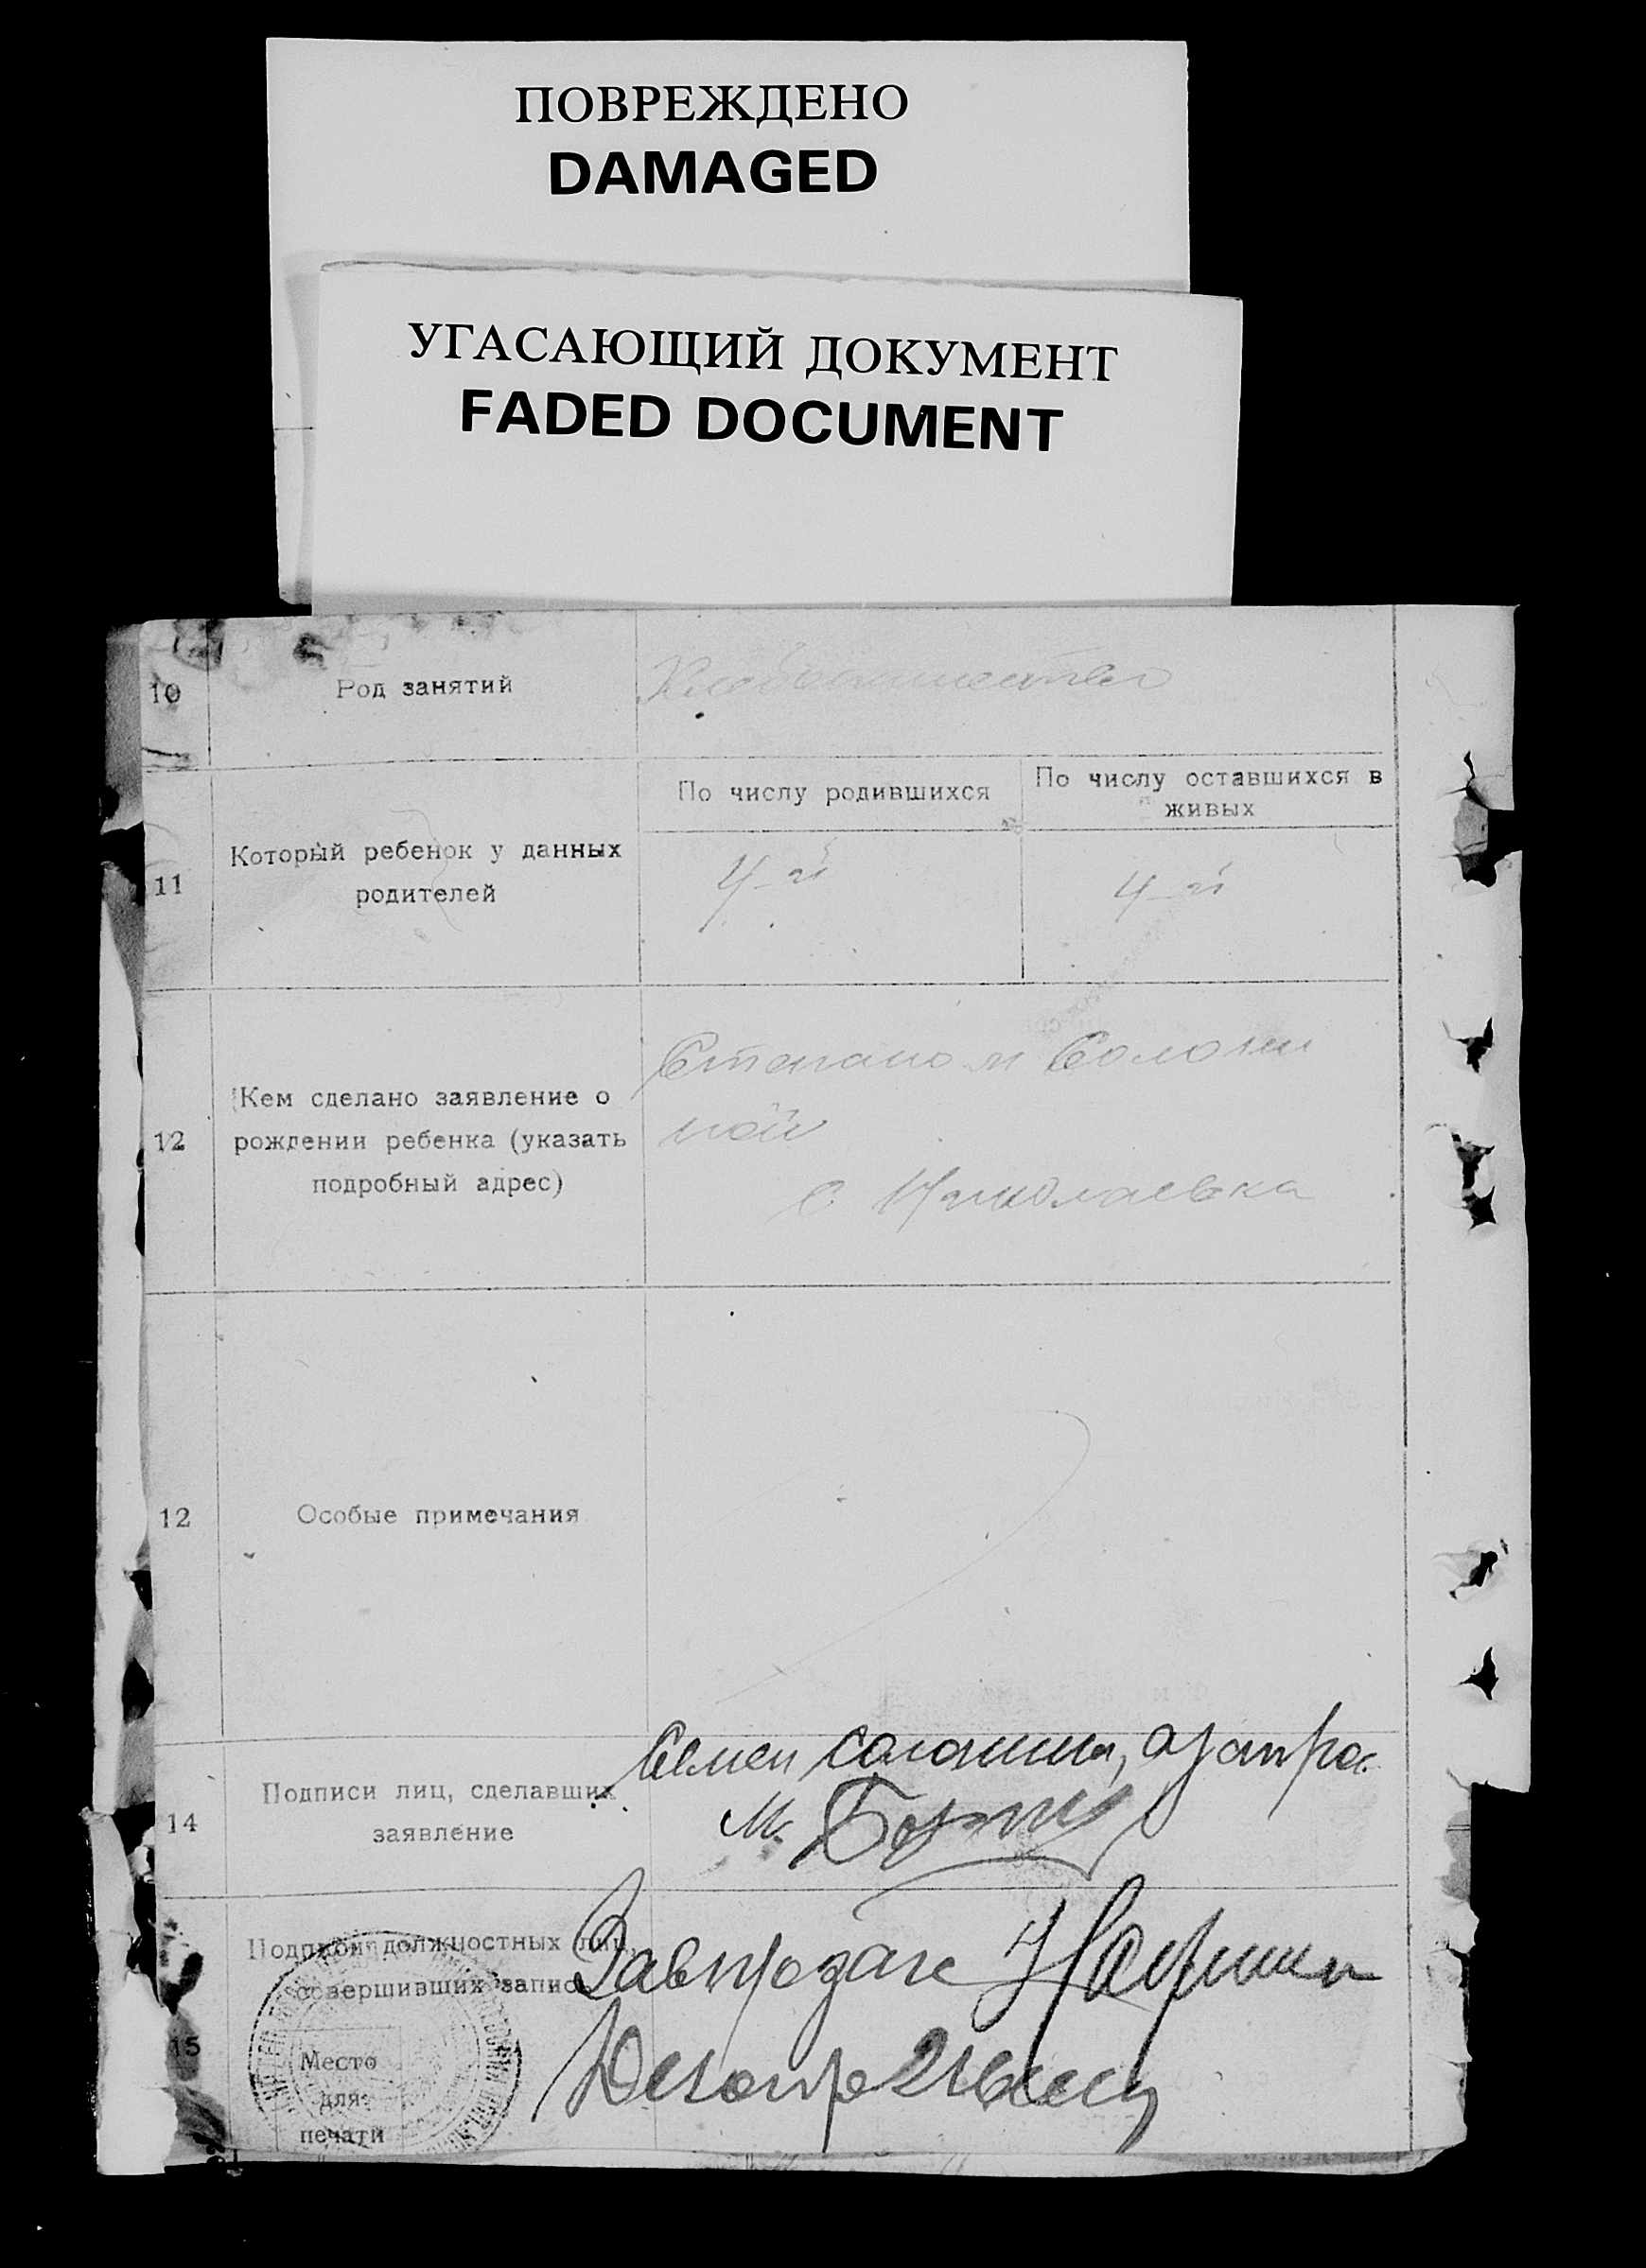 ПОВРЕЖДЕНО
DAMAGED
УГАСАЮЩИЙ ДОКУМЕНТ
FADED DOCUMENT
10 Род занятий Хлебопашество
11 Который ребенок у данных родителей
По числу родившихся
По числу оставшихся в
живых
4-й
4-й
12 Кем сделано заявление о
рождении ребенка (указать
подробный адрес)
Степаном Солони
ной
с. Николаевка
12 Особые примечания
14 Подписи лиц, сделавших
заявление
Семен
М.
15 Подписи должностных лиц,
совершивших запись
Место
для
печати
Завподзагс
Делопр